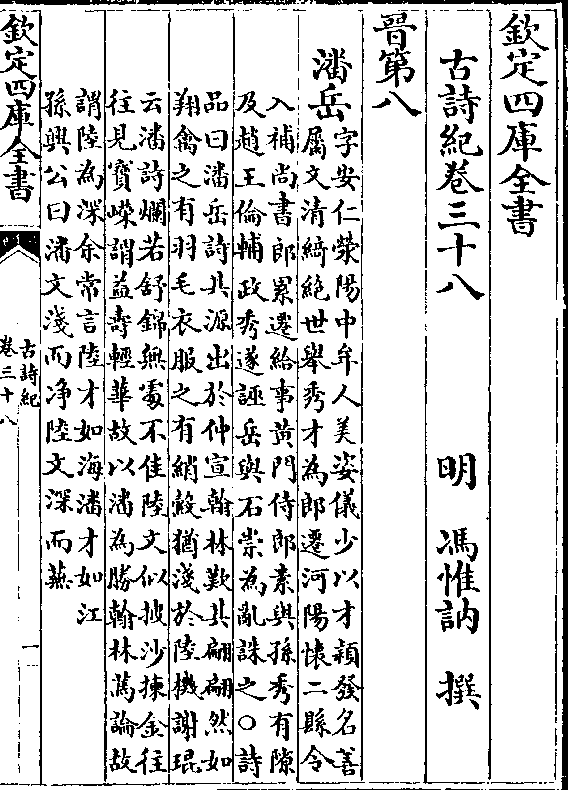 欽定四庫全書
古詩紀卷三十八　明　馮惟訥　撰
晉第八
潘岳
字安仁滎陽中牟人美姿儀少以才穎發名善
屬文清綺絶世舉秀才為郎遷河陽懷二縣令
入補尚書郎累遷給事黄門侍郎素與孫秀有隙
及趙王倫輔政秀遂誣岳與石崇為亂誅之○詩
品曰潘岳詩其源出於仲宣翰林歎其翩翩然如
翔禽之有羽毛衣服之有綃縠猶淺於陸機謝琨
云潘詩爛若舒錦無處不佳陸文似披沙揀金往
往見寳嶸謂益壽輕華故以潘為勝翰林篤論故
謂陸為深余常言陸才如海潘才如江
孫興公曰潘文淺而浄陸文深而蕪
欽定四庫全書
古詩紀
卷三十八
一